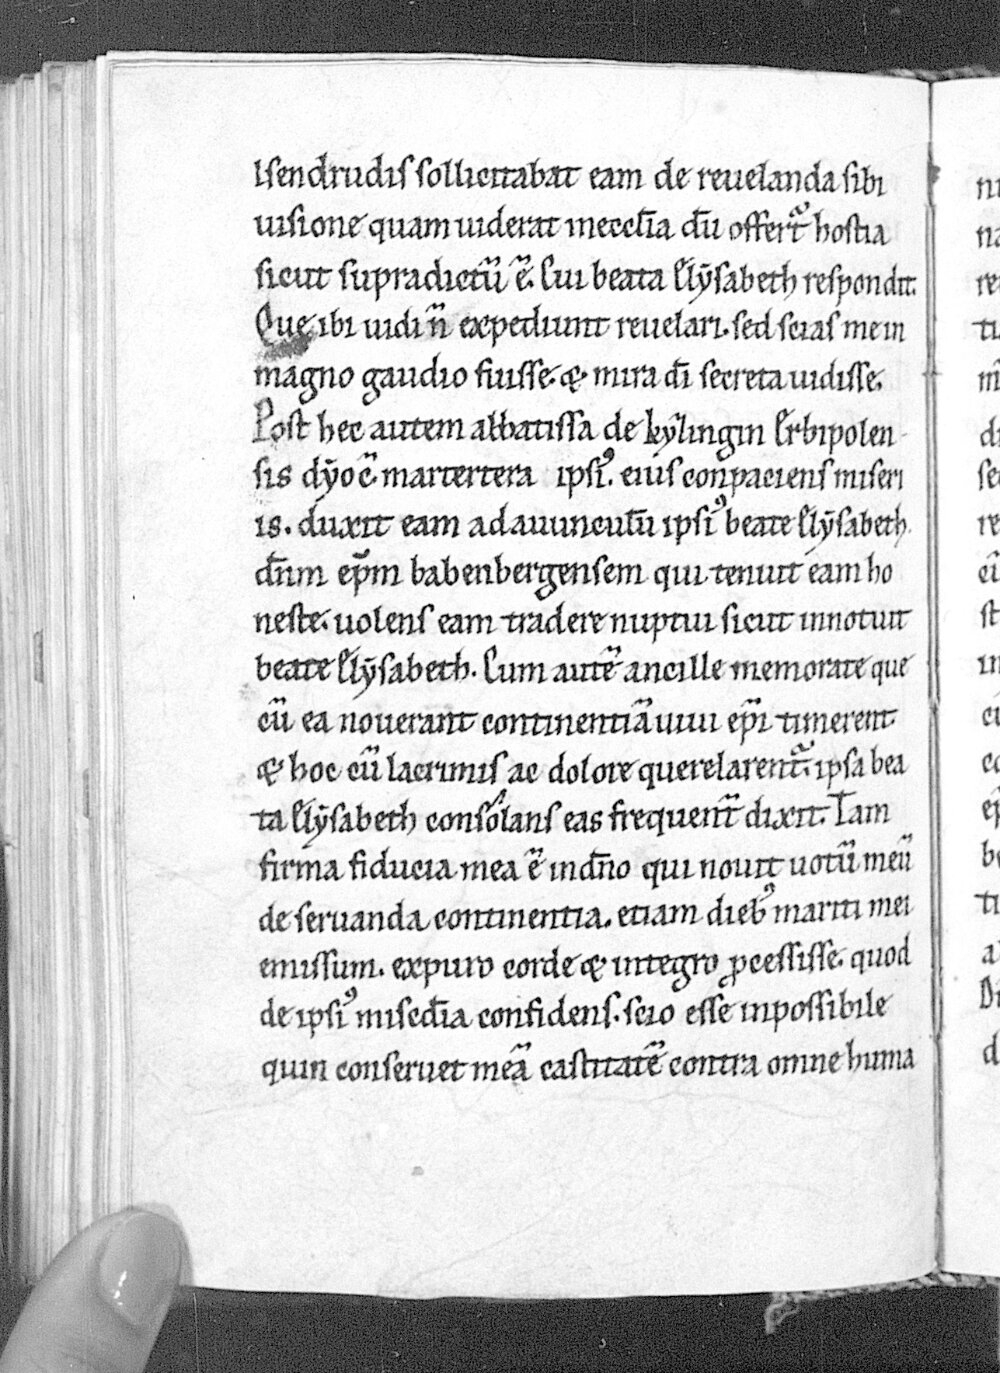 Isendrudis sollicitabat eam de reuelanda sibi
uisione quam uiderat ineccl̄ia dū offert᷑ hostia
sicut supradictū ē. Cui beata Elẏsabeth respondit.
Que ibi uidi n̄ expediunt reuelari. sed scias me in
magno gaudio fuisse. & mira dī secreta uidisse.
Post hec autem abbatissa de kẏtlingin Erbipolen
sis dẏoc̄ martertera ipsiꝰ. eius conpaciens miseri
is. duxit eam ad auunculū ipsiꝰ beate Elẏsabeth.
dn̄m ep̄m babenbergensem qui tenuit eam ho
neste. uolens eam tradere nuptui sicut innotuit
beate Elẏsabeth. Cum autē ancille memorate que
cū ea nouerant continentiā uim ep̄i timerent
& hoc cū lacrimis ac dolore querelarent᷑. ipsa bea
ta Elẏsabeth consolans eas frequent̄ dixit. Tam
firma fiducia mea ē indn̄o qui nouit uotū meū
de seruanda continentia. etiam diebꝰ mariti mei
emissum. expuro corde & integro ꝓcessisse. quod
de ipsiꝰ misēdia confidens. scio esse inpossibile
quin conseruet meā castitatē contra omne huma